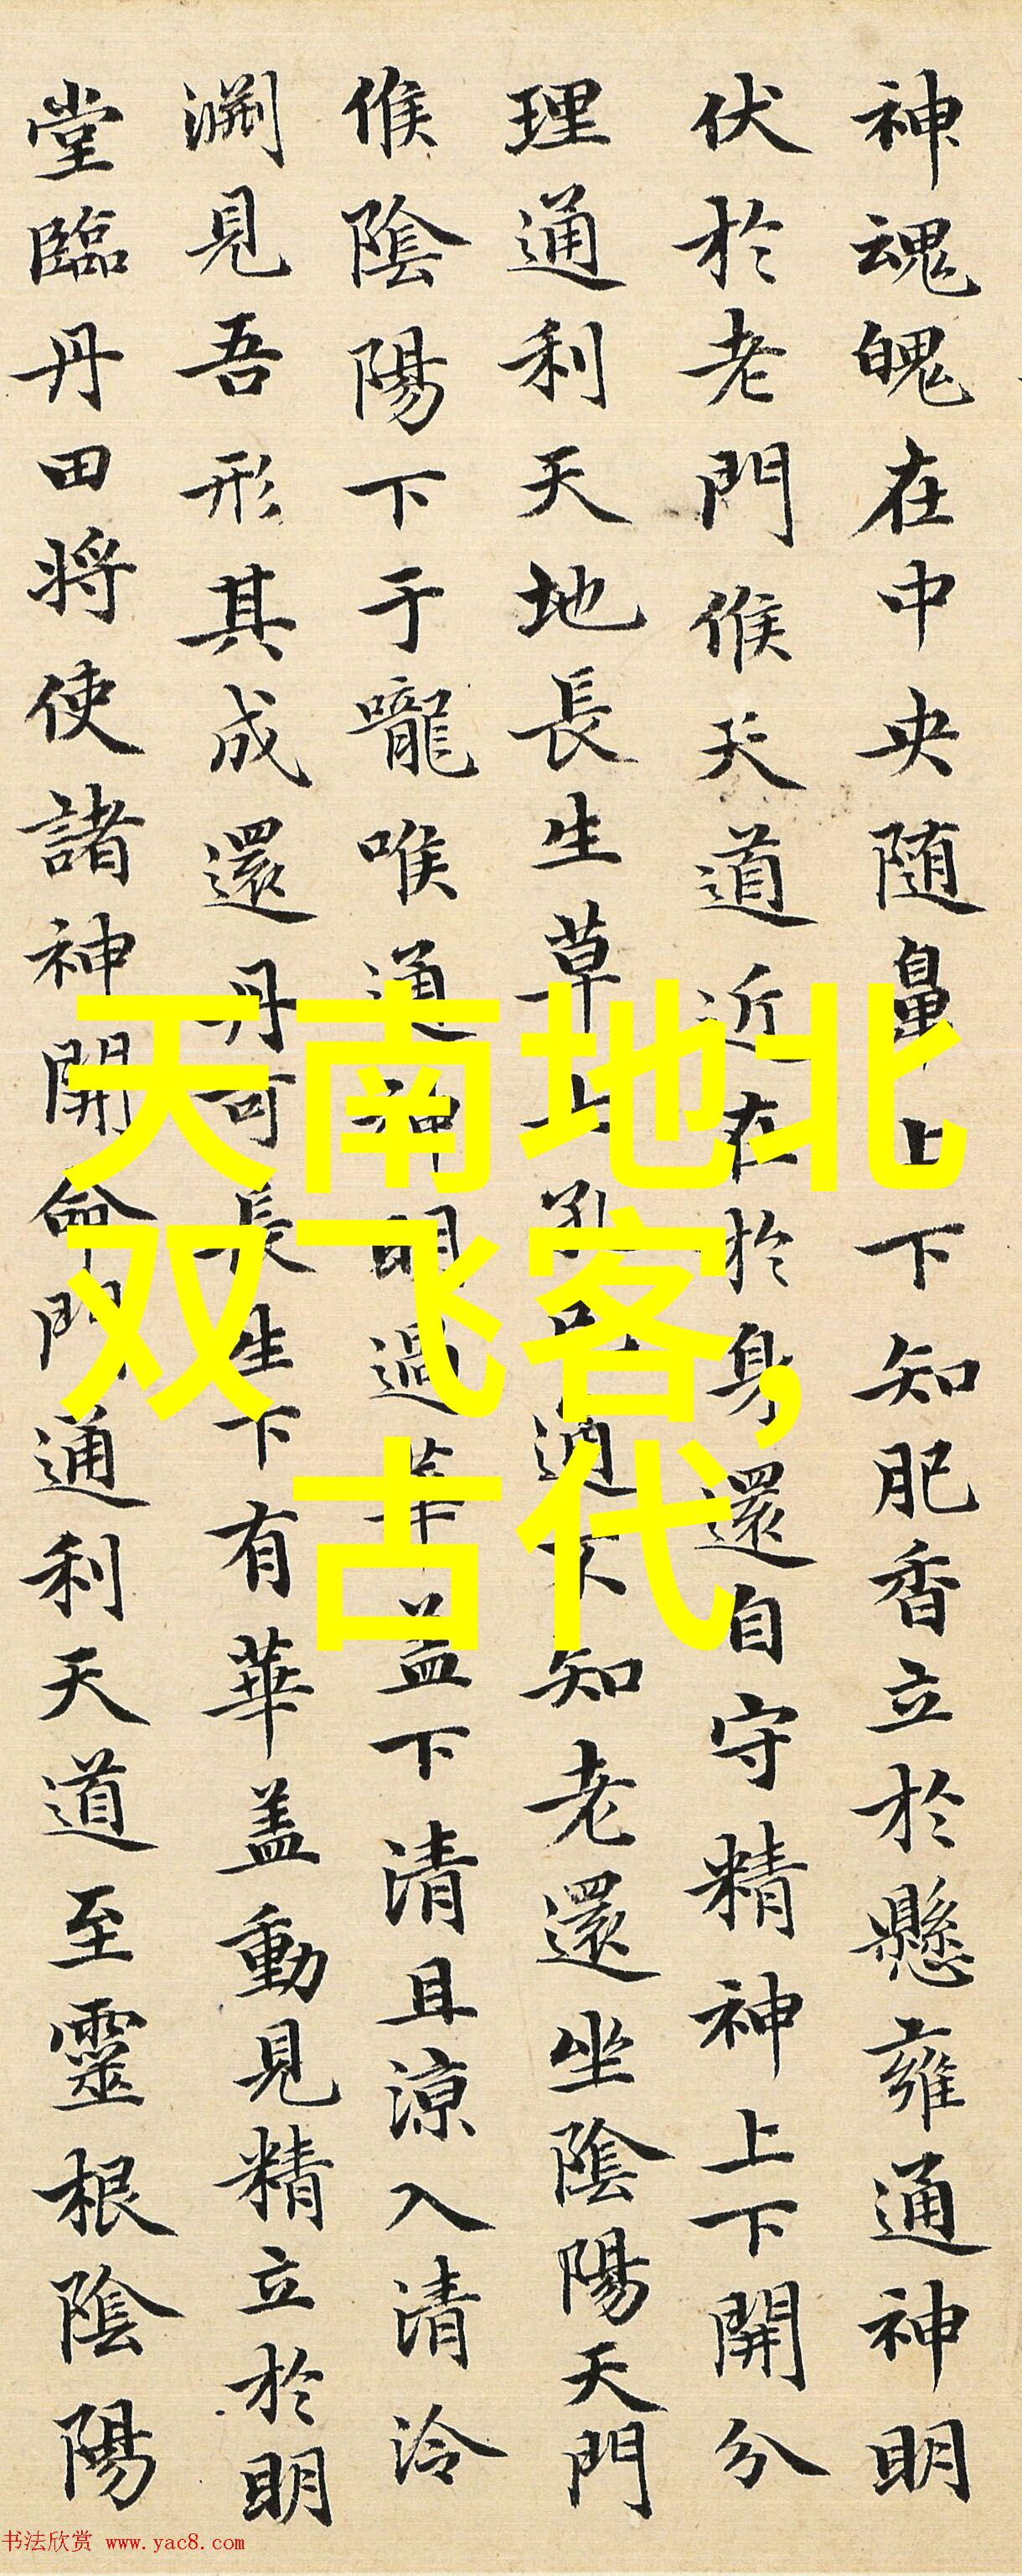 神魂魄在中央随鼻上下知肥香立於懸雍通神明
伏於老門候天道近在於身還自守精神上下開分
理通利天地長生草七孔已通不知老還坐陰陽天門
候陰陽下于嚨喉通神明過華蓋下清且涼入清泠
淵見吾形其成還丹可長生下有華盖動見精立於明
堂臨丹田将使諸神開命門通利天道至靈根陰陽
天南地北
双飞客,
古代
书法欣赏 www.yac8.com